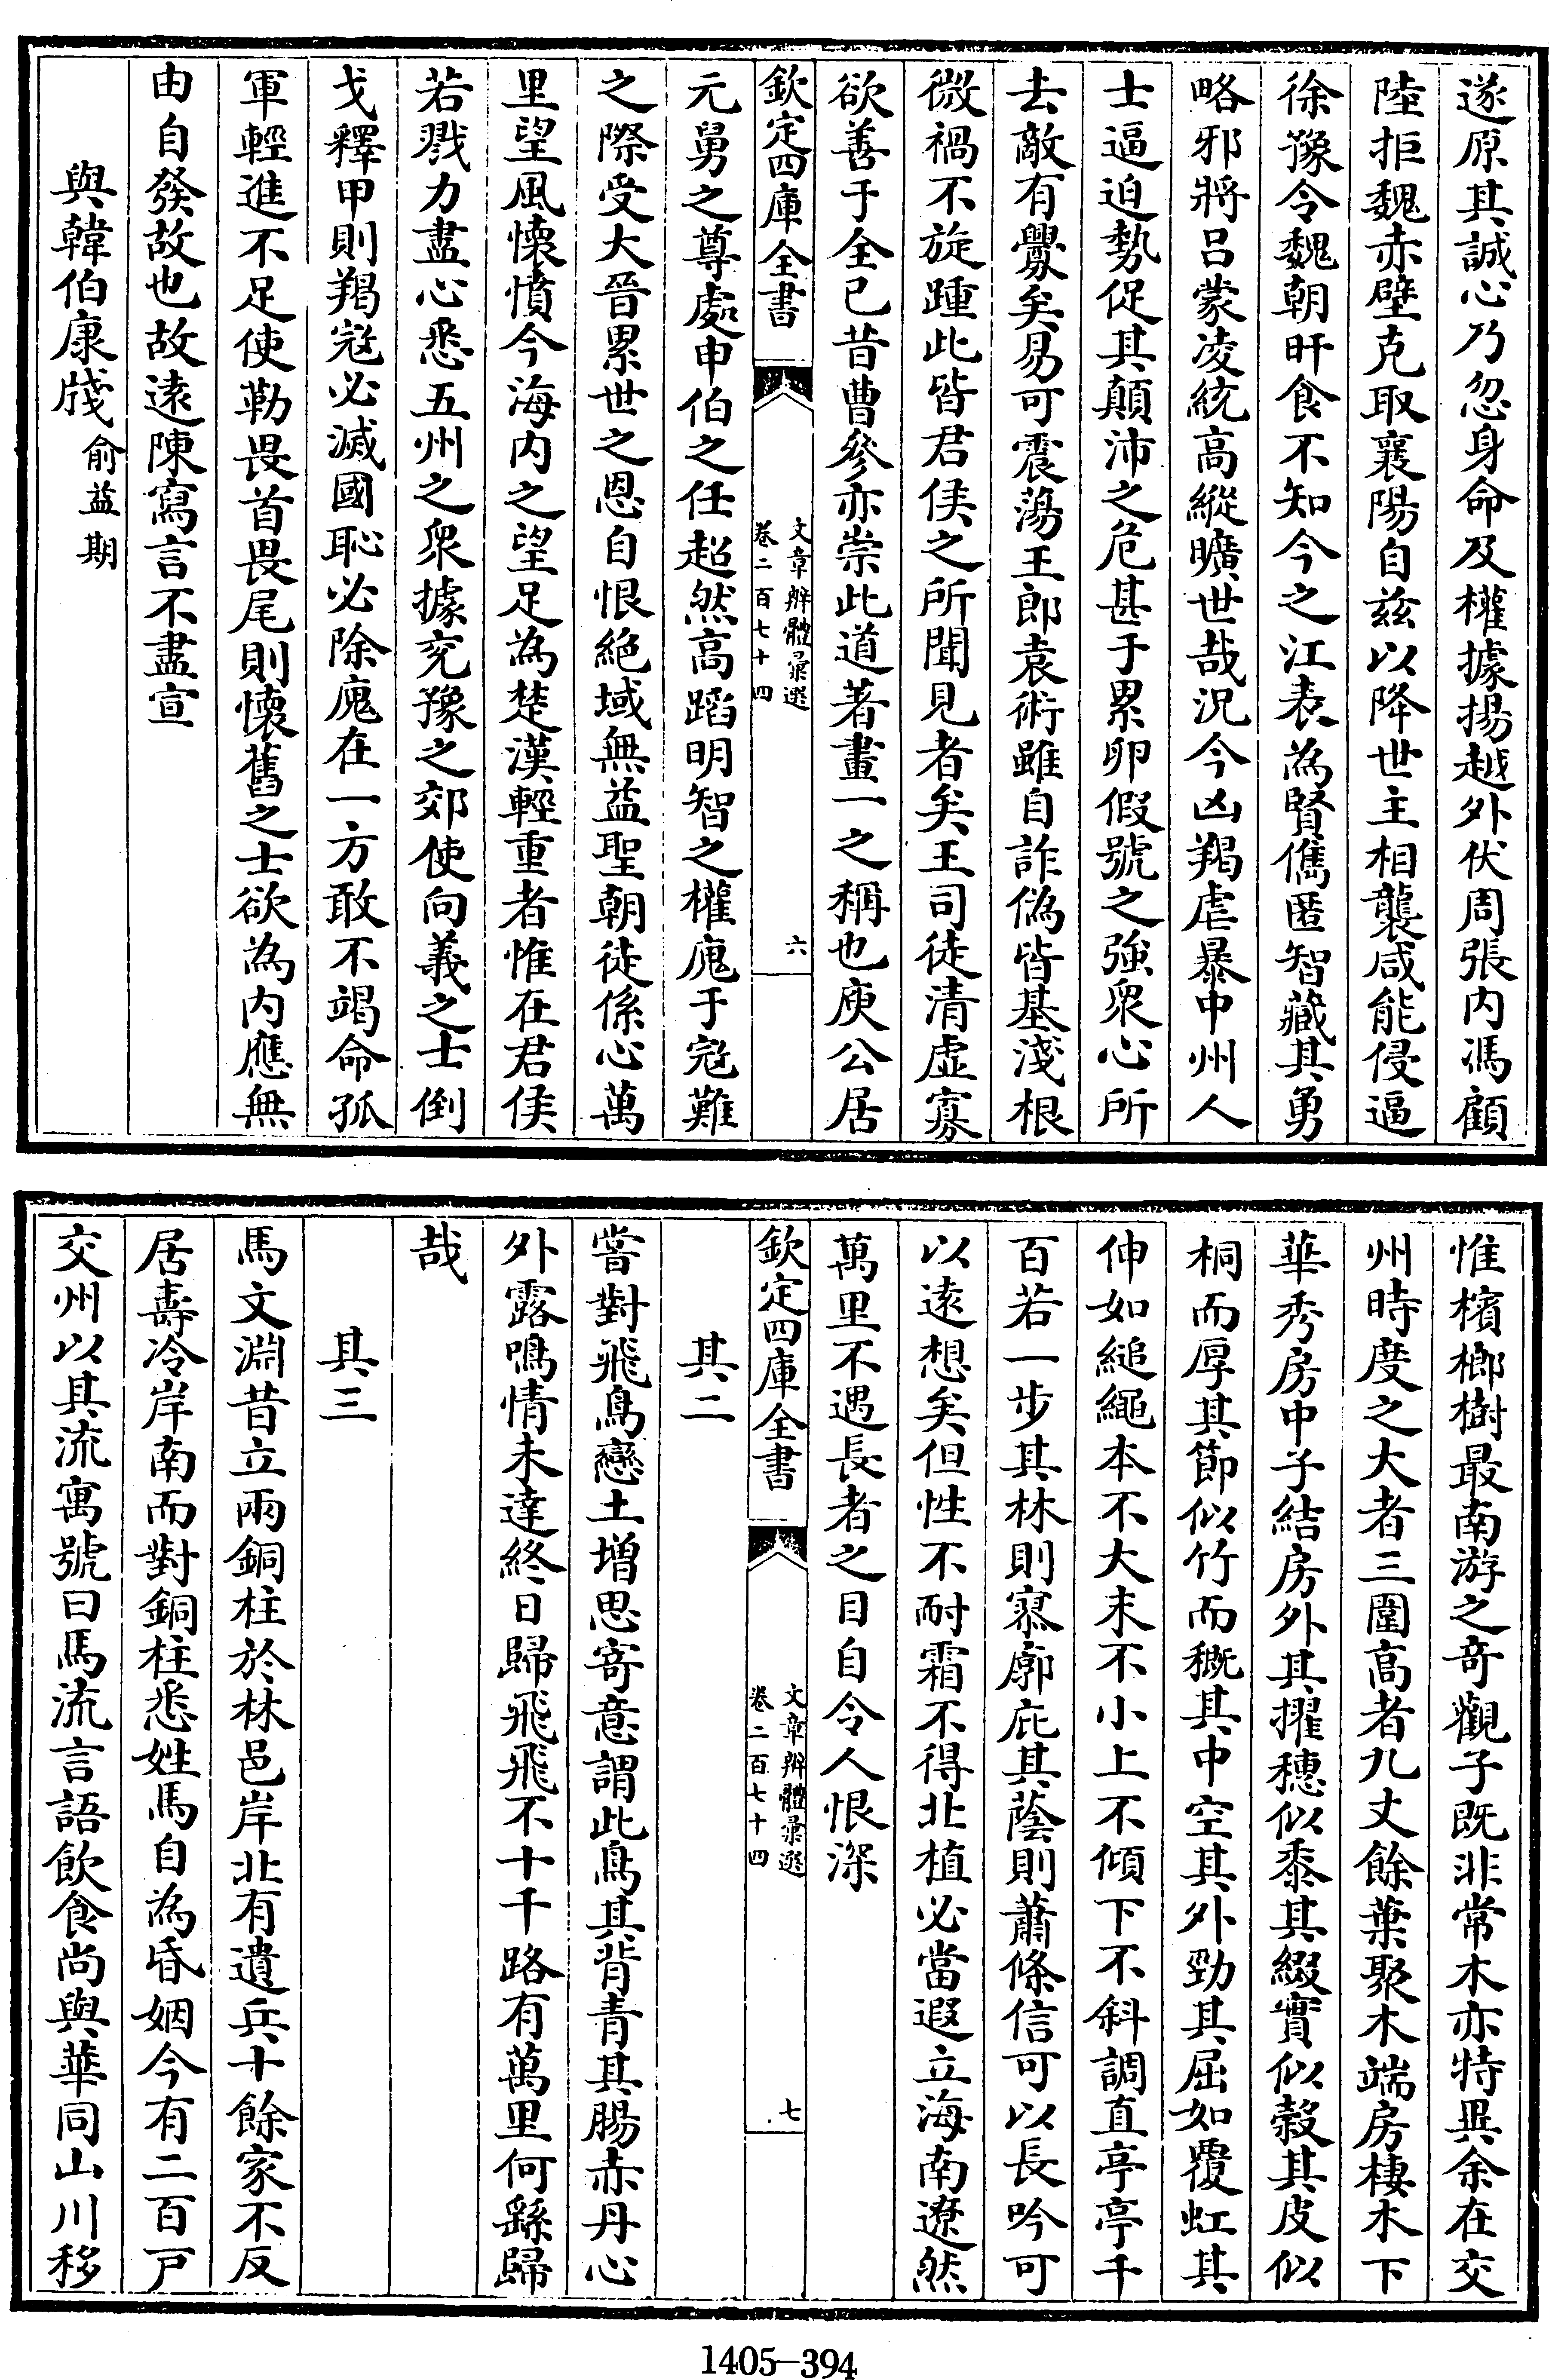 遂原其誠心乃忽身命及權據揚越外伏周張内馮顧
陸拒魏赤壁克取襄陽自兹以降世主相襲咸能侵逼
徐豫令魏朝旰食不知今之江表為賢儁匿智藏其勇
略邪將吕蒙凌統高縱曠世哉況今凶羯虐暴中州人
士逼迫勢促其顛沛之危甚于累卵假號之強衆心所
去敵有釁矣易可震蕩王郎袁術雖自詐偽皆基淺根
微禍不旋踵此皆君侯之所聞見者矣王司徒清虚寡
欲善于全已昔曹參亦崇此道著畫一之稱也庾公居
欽定四庫全書
文章辨體彙選
卷二百七十四
六
元舅之尊處申伯之任超然高蹈明智之權廆于寇難
之際受大晉累世之恩自恨絶域無益聖朝徒係心萬
里望風懷憤今海内之望足為楚漢輕重者惟在君侯
若戮力盡心悉五州之衆據兖豫之郊使向義之士倒
戈釋甲則羯寇必滅國恥必除廆在一方敢不竭命孤
軍輕進不足使勒畏首畏尾則懷舊之士欲為内應無
由自發故也故遠陳寫言不盡宣
與韓伯康牋 俞益期
惟檳榔樹最南游之奇觀子既非常木亦特異余在交
州時度之大者三圍高者九丈餘葉聚木端房棲木下
華秀房中子結房外其擢穗似黍其綴實似穀其皮似
桐而厚其節似竹而穊其中空其外勁其屈如覆虹其
伸如縋繩本不大末不小上不傾下不斜調直亭亭千
百若一步其林則寥廓庇其蔭則蕭條信可以長吟可
以遠想矣但性不耐霜不得北植必當遐立海南遼然
萬里不遇長者之目自令人恨深
欽定四庫全書
文章辨體彙選
卷二百七十四
七
其二
嘗對飛鳥戀土增思寄意謂此鳥其背青其腸赤丹心
外露鳴情未達終日歸飛飛不十千路有萬里何繇歸
哉
其三
馬文淵昔立兩銅柱於林邑岸北有遺兵十餘家不反
居壽冷岸南而對銅柱悉姓馬自為昏姻今有二百户
交州以其流寓號曰馬流言語飲食尚與華同山川移
1405—394